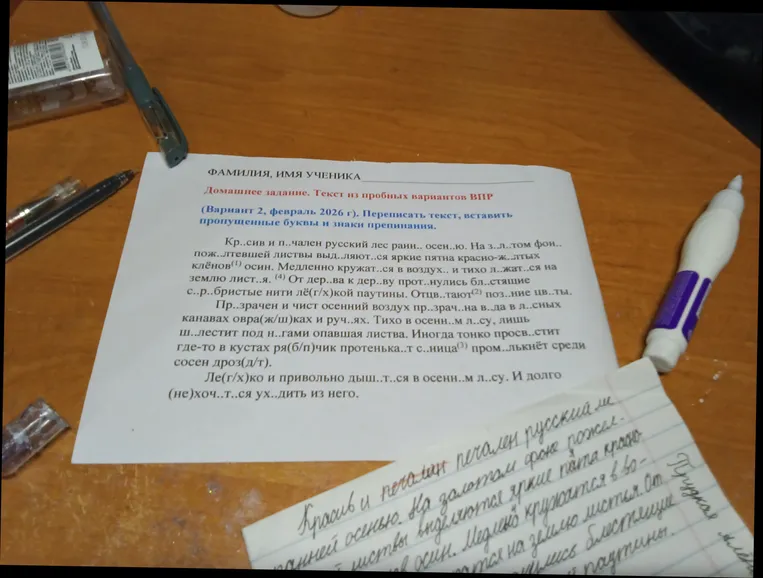 ФАМИЛИЯ, ИМЯ УЧЕНИКА
Домашнее задание. Текст из пробных вариантов ВПР
(Вариант 2, февраль 2026 г). Переписать текст, вставить
пропущенные буквы и знаки препинания.
Кр..сив и п..чален русский лес ранн.. осен..ю. На з..л..том фон..
пож..лтевшей листвы выд..ляют..ся яркие пятна красно-ж..лтых
клёнов(1) осин. Медленно кружат..ся в воздух.. и тихо л..жат..ся на
землю лист..я. (4) От дер..ва к дер..ву прот..нулись бл..стящие
с..р..бристые нити лё(г/х)кой паутины. Отцв..тают(2) поз..ние цв..ты.
Пр..зрачен и чист осенний воздух пр..зрач..на в..да в л..сных
канавах овра(ж/ш)ках и руч..ях. Тихо в осенн..м л..су, лишь
ш..лестит под н..гами опавшая листва. Иногда тонко просв..стит
где-то в кустах ря(б/п)чик протенька..т с..ница(3) пром..лькнёт среди
сосен дроз(д/т).
Ле(г/х)ко и привольно дыш..т..ся в осенн..м л..су. И долго
(не)хоч..т..ся ух..дить из него.
Красив и печален русский ле
ранней осенью. На золотом фоне пожел-
листвы выделяются яркие пята красно
осин. Медлено кружатся в во-
на землю листья. От
блестящие
паутины.